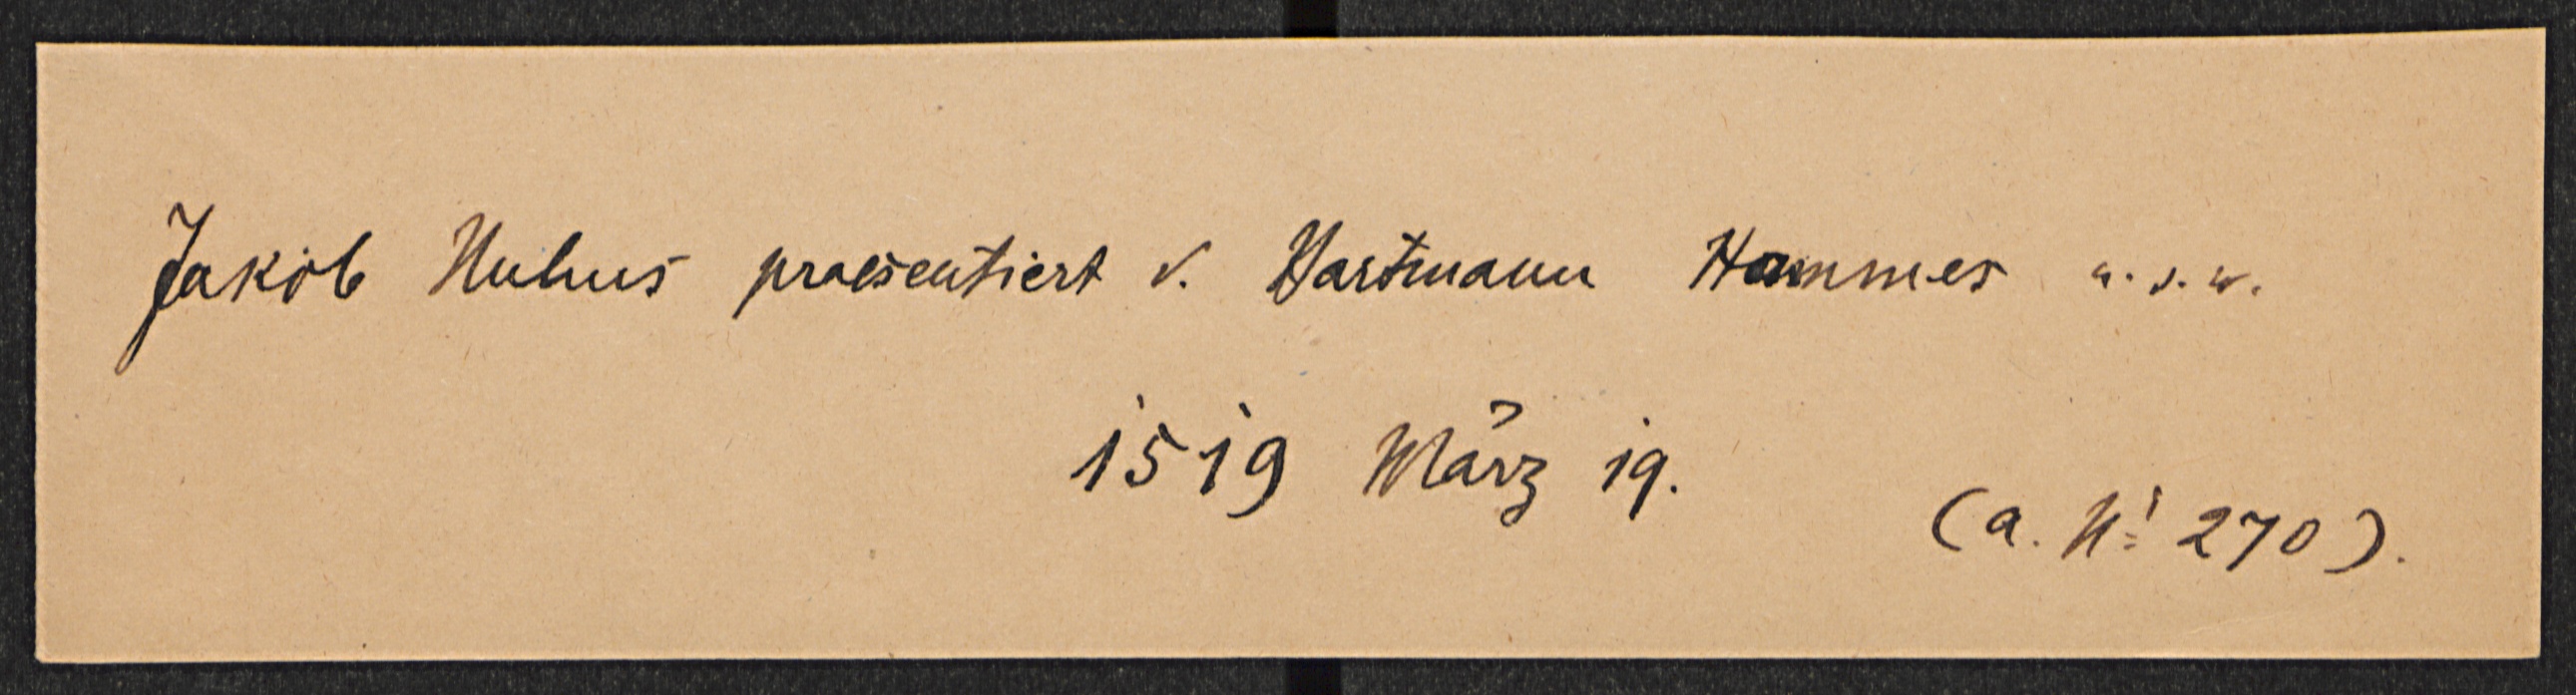 Jakob Huhus praesentiert v. Hartmann Hammes u.s.w.
1519 März 19.
(a. N: 270).